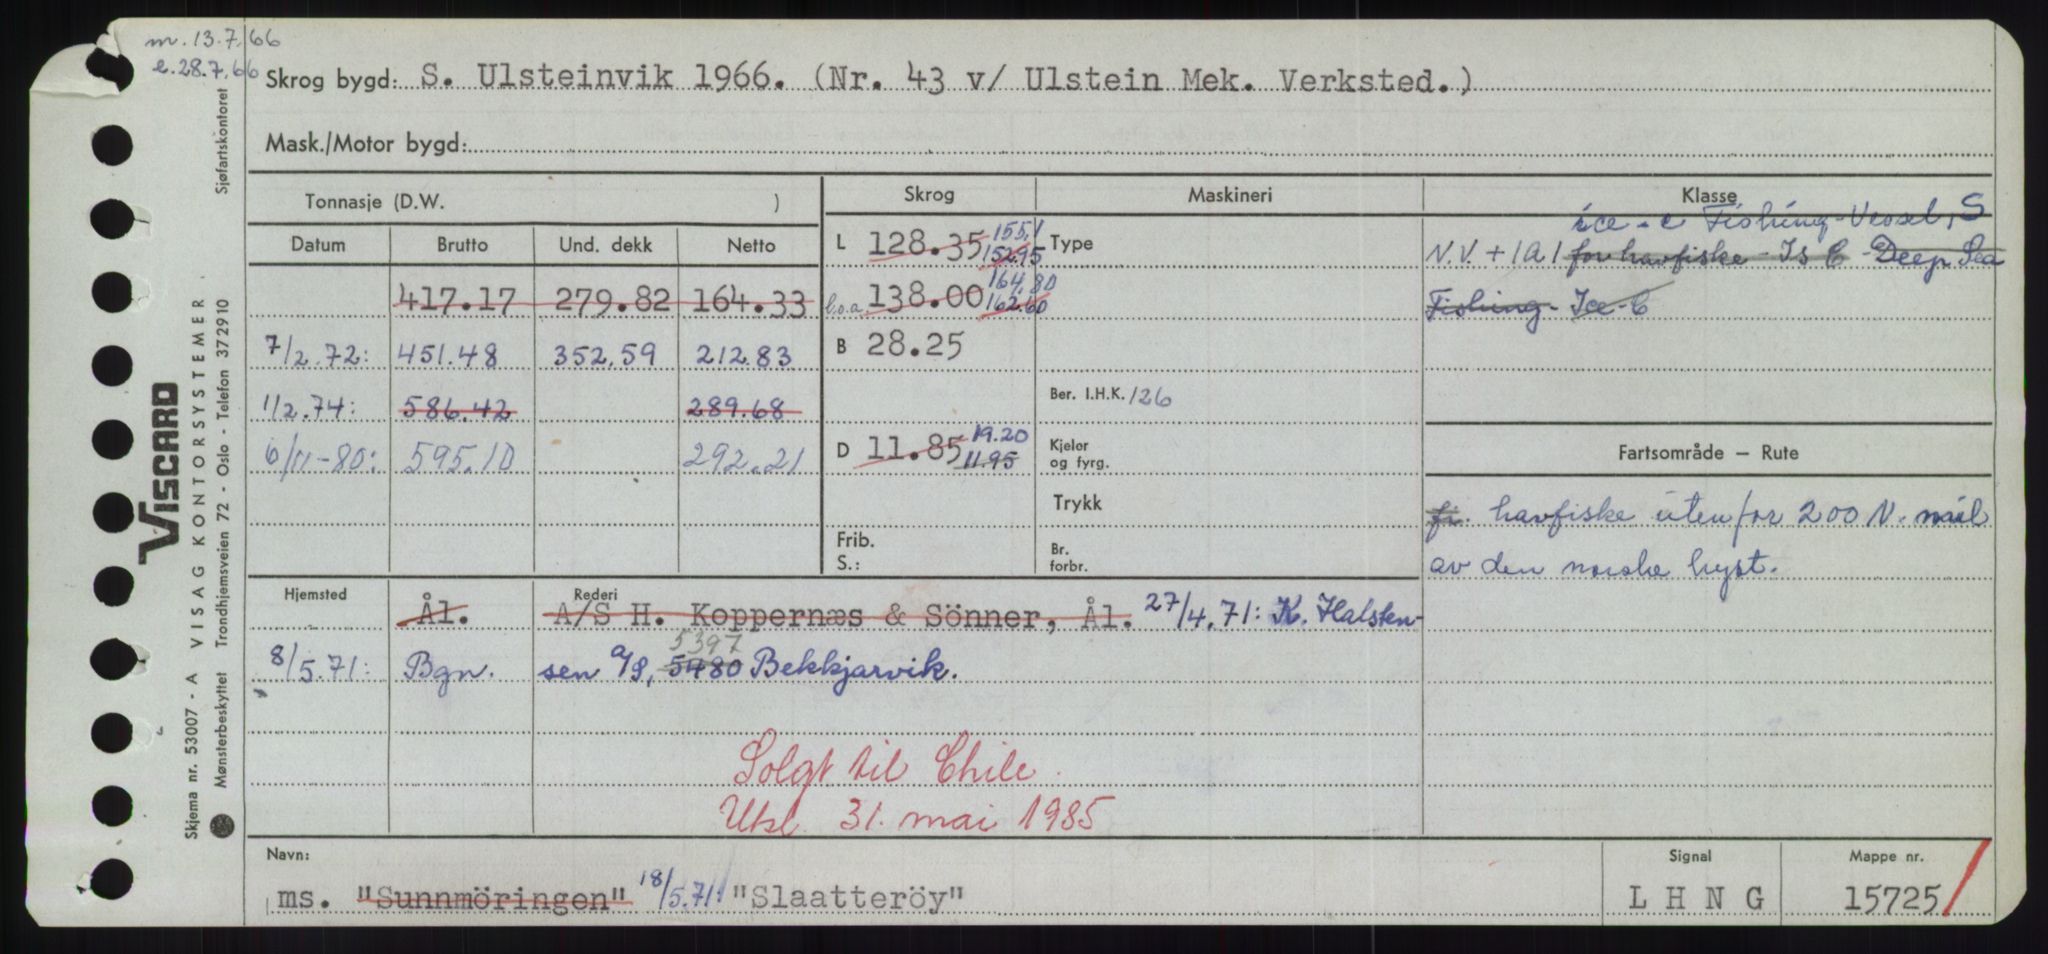 m. 13.7.66
e. 28.7.66
Skrog bygd: S. Ulsteinvik 1966. (Nr. 43 v/ Ulstein Mek. Verksted.)
Mask./Motor bygd:
Tonnasje (D.W. )
Datum Brutto Und. dekk Netto
417.17 279.82 164.33
7/2.72: 451.48 352.59 212.83
1/2.74: 586.42 289.68
6/11-80: 595.10 292.21
Skrog
L 128.35 155.1
152.95
l.o.a. 138.00 164.80
162.60
B 28.25
D 11.85 19.20
11.95
Frib.
S.:
Maskineri
Type
Ber. I.H.K. 126
Kjeler
og fyrg.
Trykk
Br.
forbr.
Klasse
ice-c Fishing-Vessel, S
N.V. + 1A1 for havfiske - Is C - Deep Sea
Fishing - Ice-C
Fartsområde — Rute
fr. havfiske utenfor 200 N. mil
av den norske kyst.
Hjemsted Rederi
Ål. A/S H. Koppernæs & Sönner, Ål. 27/4.71: K. Halsten-
5397
8/5.71: Bgn. sen A/S, 5480 Bekkjarvik.
Solgt til Chile.
Utsl. 31. mai 1985
Navn: Signal Mappe nr.
ms. "Sunnmöringen" 18/5.71: "Slaatteröy" L H N G 15725
VISCARD
Skjema nr. 53007 - A VISAG KONTORSYSTEMER.
Mønsterbeskyttet Trondhjemsveien 72 - Oslo - Telefon 372910 Sjøfartskontoret